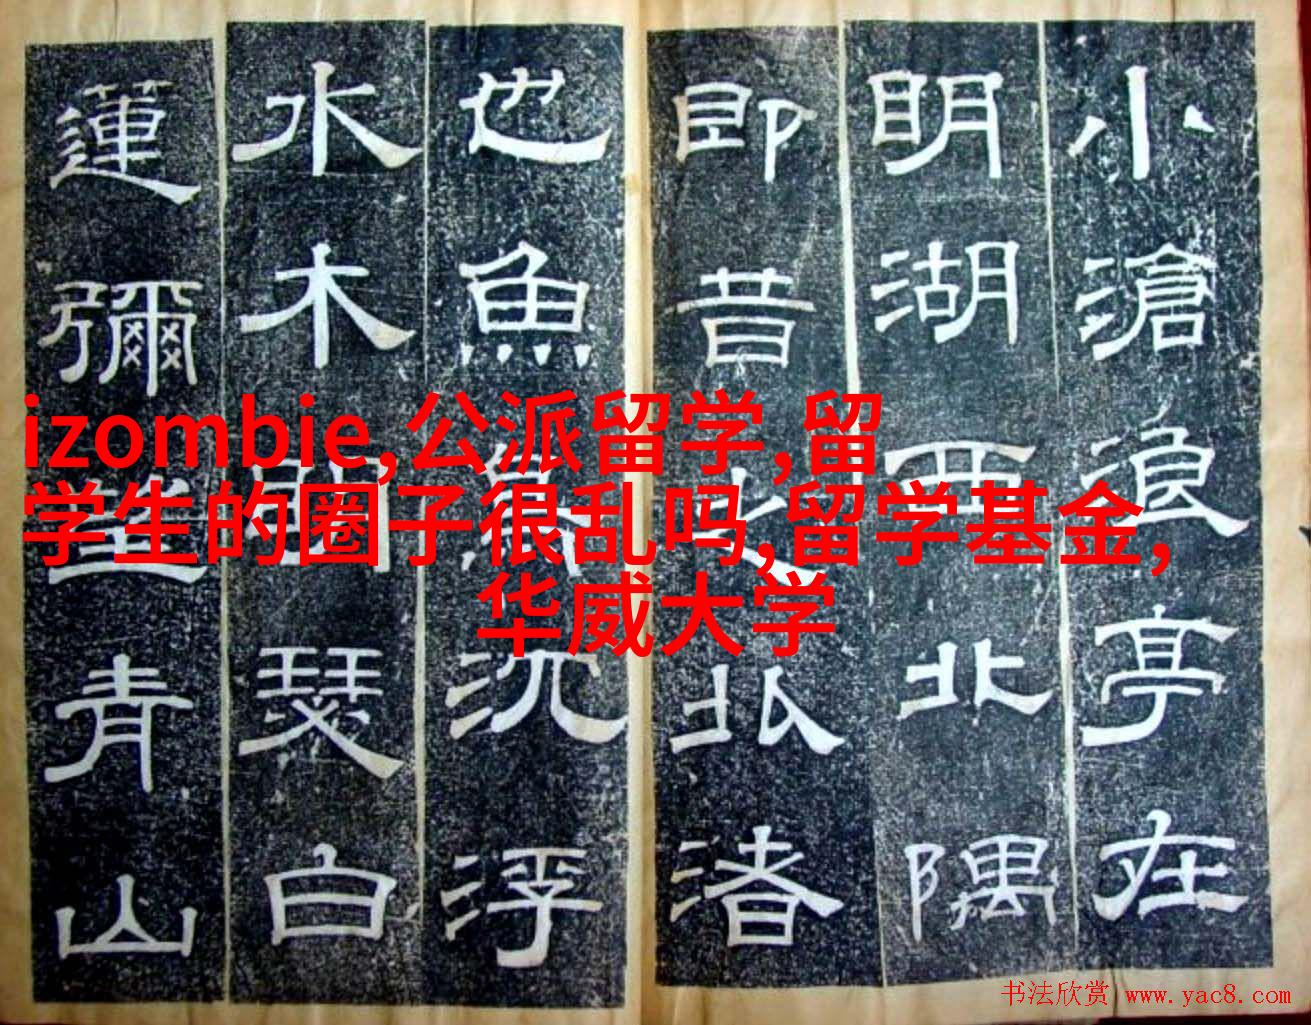 小滄浪亭在
明湖西北隅
即昔之北渚
也魚沉浮
水木瑟白
蓮彌望青山
izombie,公派留学,留
学生的圈子很乱吗,留学基金,
华威大学
书法欣赏 www.yac8.com